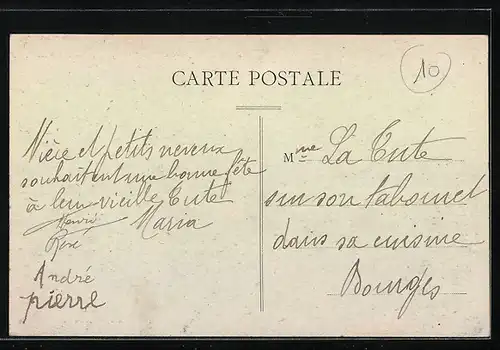 CARTE POSTALE
10
Nièce et petits neveux
souhaitent une bonne fête
à leur vieille Tute
Maria
Henri
René
André
pierre
Mme La Tute
sur son tabouret
dans sa cuisine
Bourges